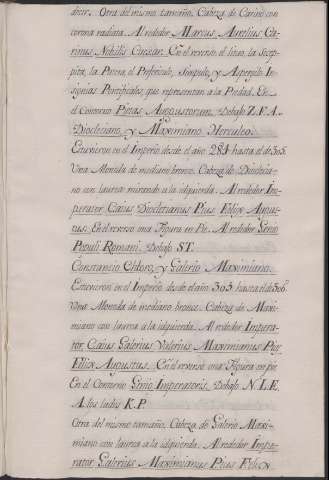 decir. Otra del mismo tamaño. Cabeza de Carino con
corona radiata. Al rededor Marcus Aurelius Ca-
rinus Nobilis Caesar. En el reverso el lituo, la Seces-
pita, la Patera, el Prefericulo, Simpulo, y Aspergilo In-
signias Pontificales, que representan a la Piedad. En
el Contorno Pietas Augustorum. Debajo Z. F. A.
Diocleciano, y Maximiano Herculeo.
Estuvieron en el Imperio desde el año 284 hasta el de 305.
Una Moneda de mediano bronce. Cabeza de Diocleia-
no con laurea mirando a la izquierda. Al rededor Im-
perator Caius Diocletianus Pius Felix Augus-
tus. En el reverso una Figura en Pie. Al rededor Genio
Populi Romani. Debajo ST.
Constancio Chloro, y Galerio Maximiano.
Estuvieron en el Imperio desde el año 305 hasta el de 306
Una Moneda de mediano bronce. Cabeza de Maxi-
miano con laurea a la izquierda. Al rededor Impera-
tor Caius Galerius Valerius Maximianus Pius
Felix Augustus. En el reverso una Figura en pie
En el Contorno Genio Imperatoris. Debajo N. L. E.
A los lados K. P.
Otra del mismo tamaño. Cabeza de Galerio Maxi-
miano con laurea a la izquierda. Al rededor Impe-
rator Galerius Maximianus Pius Felix